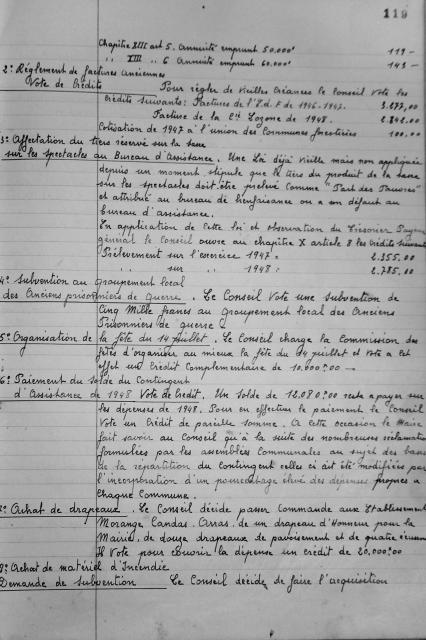 119
Chapitre XIII art 5. Annuité emprunt 50.000f 119 -
,, XIII ,, 6 Annuité emprunt 60.000f 145 -
2° Réglement de factures anciennes
Vote de Crédits Pour régler de vieilles créances le Conseil Vote les
Crédits suivants: Facture de l'E.d.F de 1946-1947. 3.877,00
Facture de la Cie Lozone de 1948. 2.842,00
Cotisation de 1947 à l'union des Communes forestières 100,00
3° Affectation du tiers réservé sur la taxe
sur les spectacles au Bureau d'Assistance. Une Loi déjà vieille mais non appliquée
depuis un moment stipule que le tiers du produit de la taxe
sur les spectacles doit être prélevé comme "Part des Pauvres"
et attribué au bureau de bienfaisance ou a son défaut au
bureau d'assistance.
En application de cette loi et observation du Trésorier Payeur
général le Conseil ouvre au chapitre X article 8 les Crédits suivants
Prélevement sur l'exercice 1947 = 2.355,00
,, sur ,, 1948 = 2.785,00
4° Subvention au groupement local
des Anciens prisonniers de Guerre. Le Conseil Vote une subvention de
Cinq Mille francs au Groupement local des Anciens
Prisonniers de guerre
5° Organisation de la fête du 14 juillet. Le Conseil charge la Commission des
fêtes d'organiser au mieux la fête du 14 juillet et Vote a cet
effet un Crédit Complementaire de 10.000f00 -
6° Paiement du solde du Contingent
d'Assistance de 1948 Vote de Crédit. Un solde de 12.080f00 reste a payer sur
les dépenses de 1948. Pour en effectuer le paiement le Conseil
Vote un Crédit de pareille somme. A cette occasion le Maire
fait savoir au Conseil qu'à la suite des nombreuses réclamations
formulées par les assemblées Communales au sujet des bases
de la répartition du Contingent celles ci ont été modifiées par
l'incorporation d'un pourcentage élevé des dépenses propres a
Chaque Commune.
7° Achat de drapeaux. Le Conseil décide passer Commande aux Etablissements
Morange Landas Arras, de un drapeau d'Honneur pour la
Mairie, de douze drapeaux de pavoisement et de quatre écussons
Il Vote pour couvrir la dépense un crédit de 20.000f00
8° Achat de matériel d'Incendie
Demande de subvention Le Conseil décide de faire l'acquisition